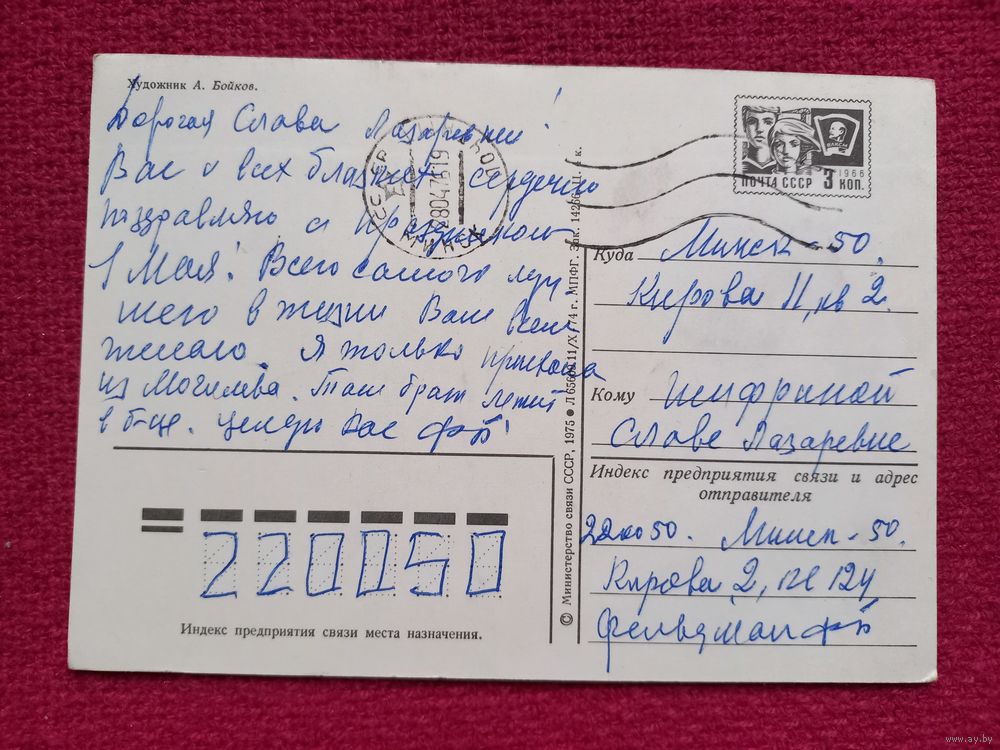 Художник А. Бойков.
Дорогая Слава Лазаревна!
Вас и всех близких сердечно
поздравляю с праздником
1 Мая! Всего самого луч
шего в жизни Вам всем
желаю. Я только приехала
из Могилева. Там брат лежит
в б-це. Целую Вас ФБ
220050
Индекс предприятия связи места назначения.
© Министерство связи СССР, 1975 ● Л 11/X 74 г. МПФГ. Зак. ц. к.
СССР МИНСК
ПОЧТА СССР 3 КОП.
1966
ВЛКСМ
Куда Минск-50.
Кирова 11, кв 2.
Кому Шифриной
Славе Лазаревне
Индекс предприятия связи и адрес
отправителя
50. Минск-50.
Кирова 2, кв 124
Фельдман ФБ
www.ay.by